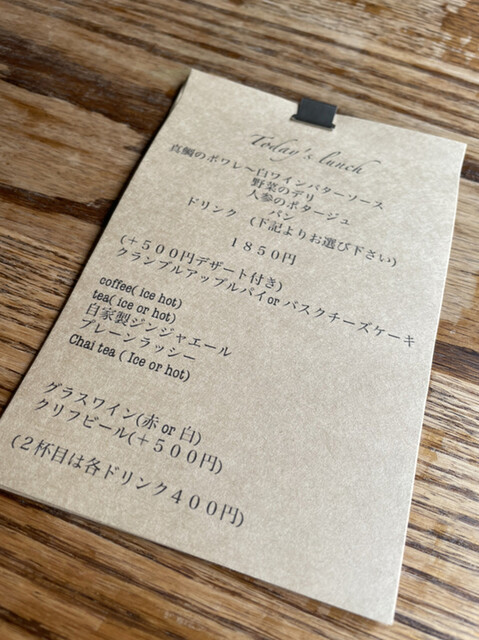 Today's lunch
真鯛のポワレ〜白ワインバターソース
野菜のデリ
人参のポタージュ
パン
ドリンク (下記よりお選び下さい)
１８５０円
(＋５００円デザート付き)
クランブルアップルパイor バスクチーズケーキ
coffee( ice hot)
tea( ice or hot)
自家製ジンジャエール
プレーンラッシー
Chai tea ( Ice or hot)
グラスワイン(赤 or 白)
クリフビール(＋５００円)
(２杯目は各ドリンク４００円)